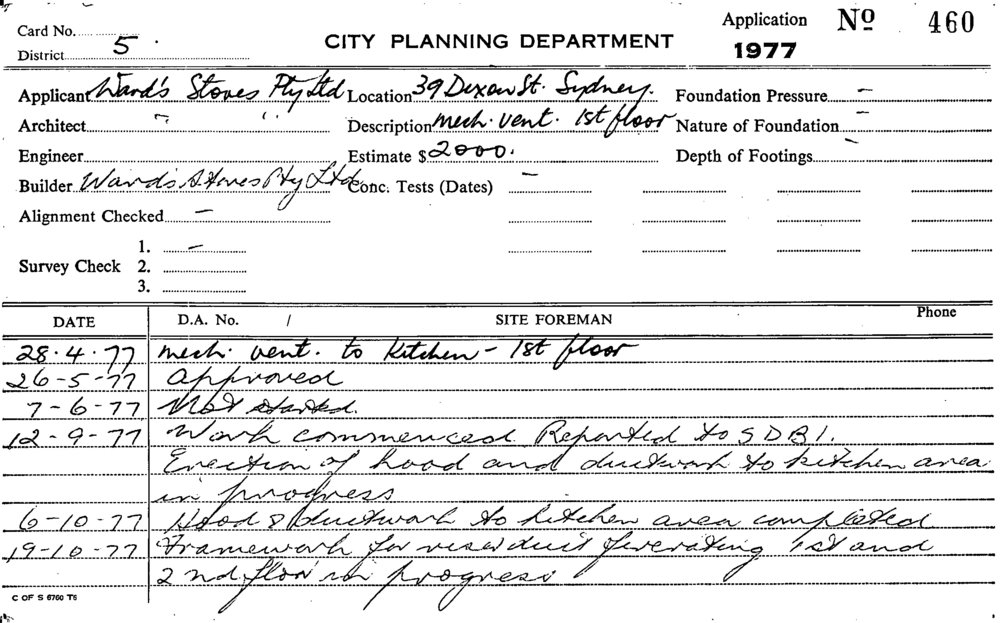 Card No.
District 5
CITY PLANNING DEPARTMENT
Application Nº 460
1977
Applicant Ward's Stoves Pty Ltd Location 39 Dixon St. Sydney. Foundation Pressure –
Architect " " Description mech. vent. 1st floor Nature of Foundation –
Engineer Estimate $ 2000. Depth of Footings –
Builder Ward's Stoves Pty Ltd Conc. Tests (Dates) –
Alignment Checked –
1. –
Survey Check 2.
3.
DATE D.A. No. / SITE FOREMAN Phone
28.4.77 mech. vent. to kitchen – 1st floor
26-5-77 Approved
7-6-77 Not started.
12-9-77 Work commenced. Reported to SDBI.
Erection of hood and ductwork to kitchen area
in progress
6-10-77 Hood & ductwork to kitchen area completed
19-10-77 Framework for riser duct 1st and
2nd floor in progress
C OF S 6760 T6